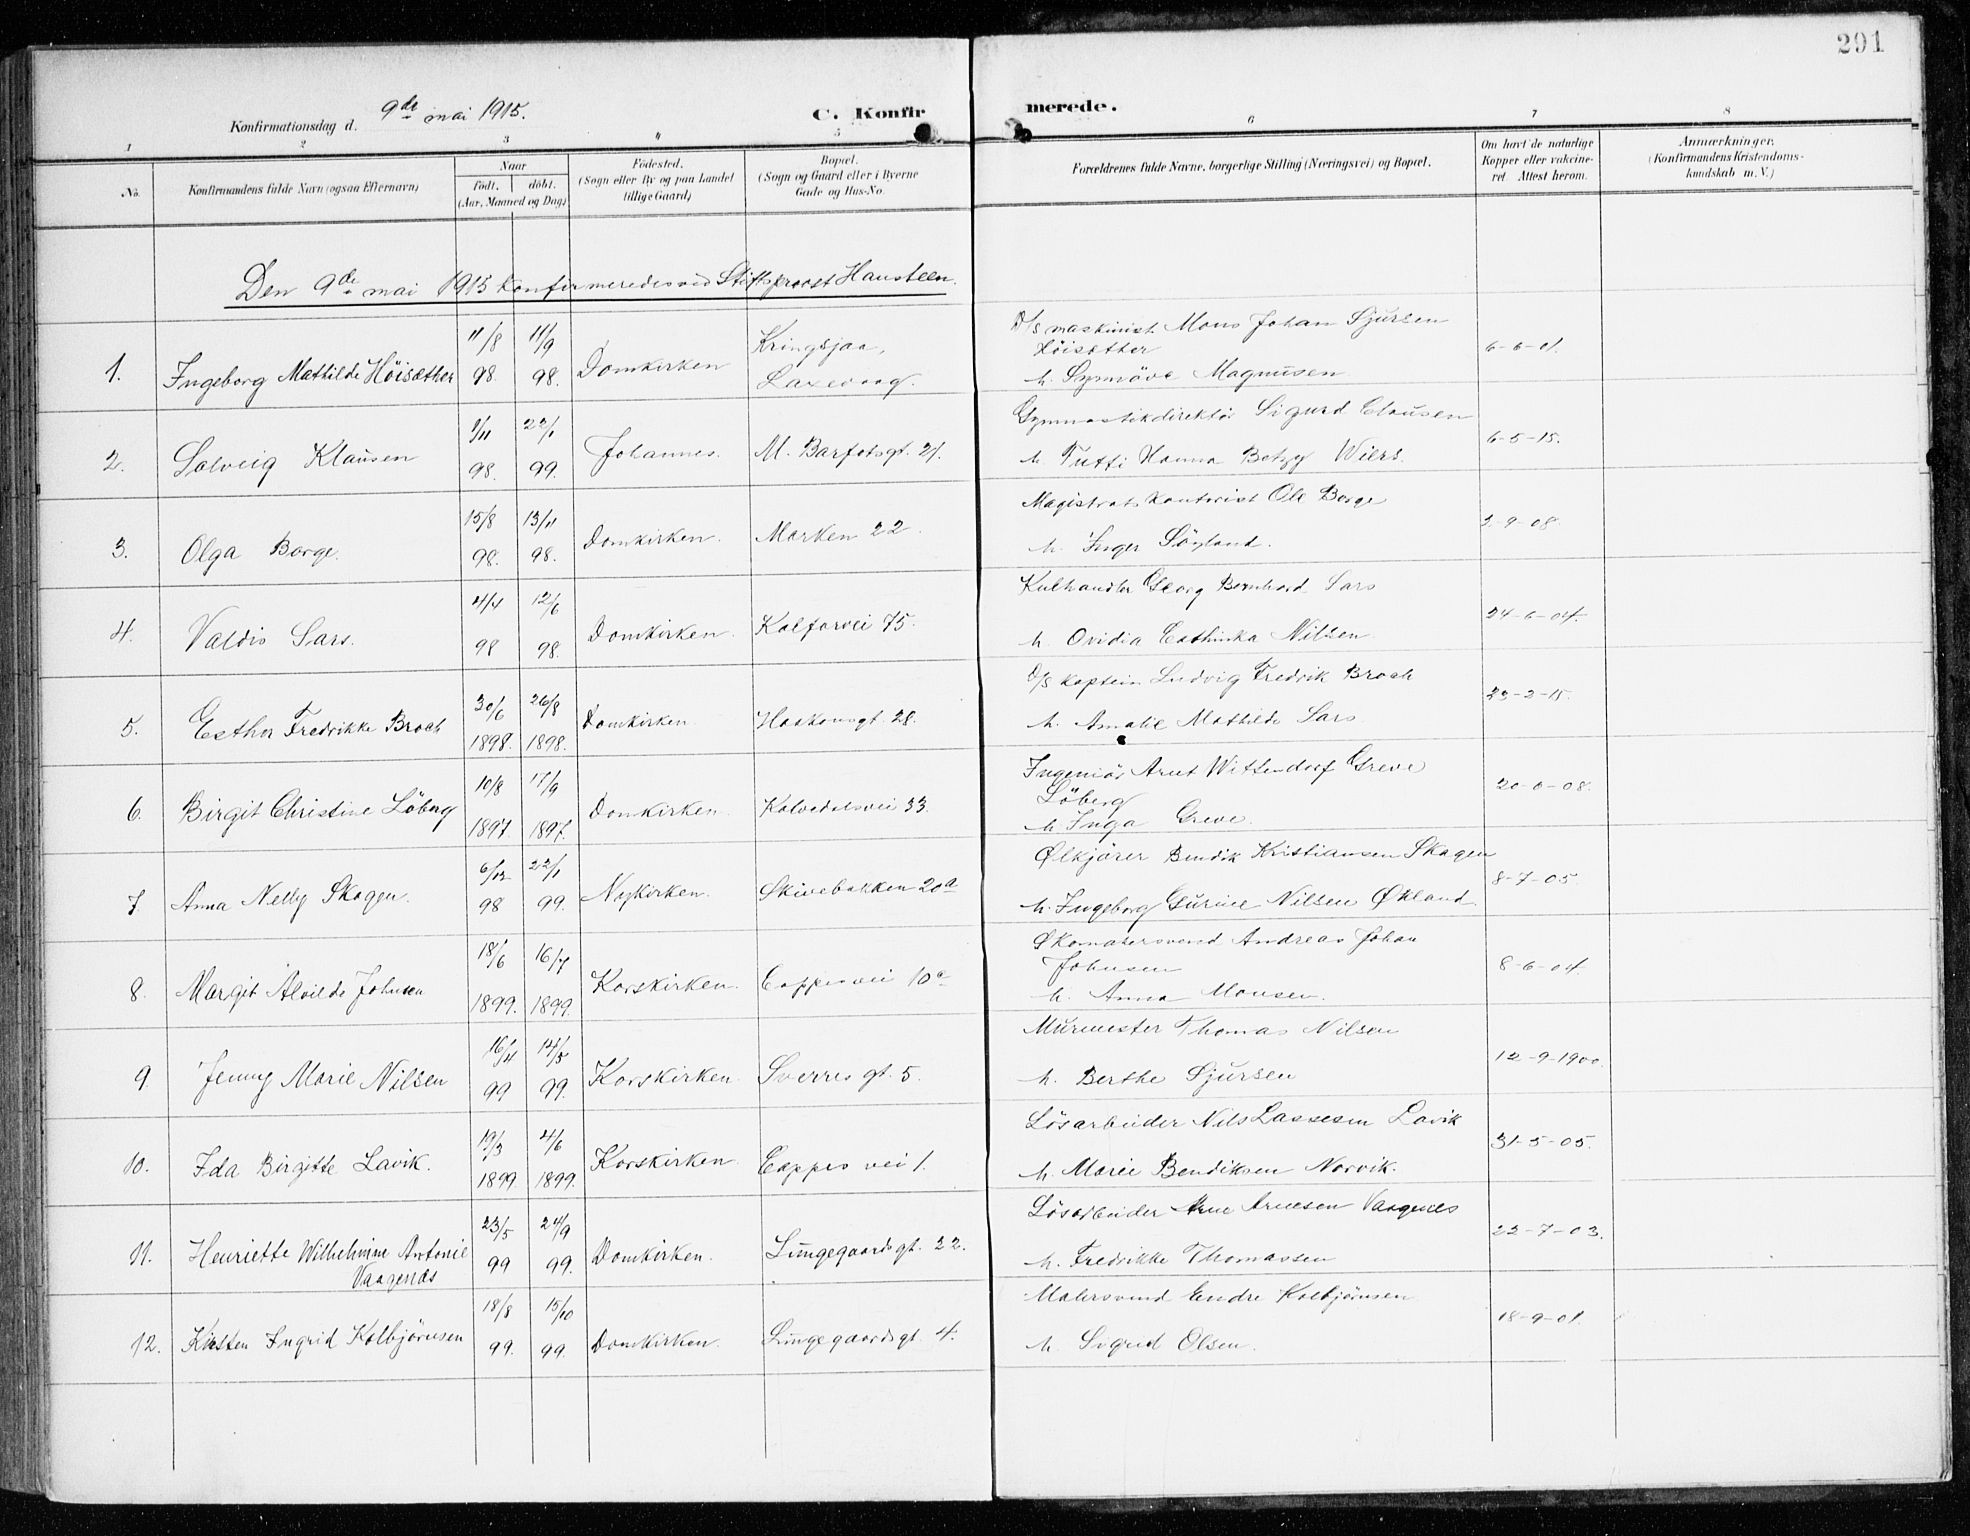 291
Konfirmationsdag d. 9de mai 1915.
C. Konfirmerede.
1 2 3 4 5 6 7 8
No. Konfirmandens fulde Navn (ogsaa Efternavn) Naar født. døbt. (Aar, Maaned og Dag) Fødested. (Sogn eller By og paa Landet tillige Gaard) Bopæl. (Sogn og Gaard eller i Byerne Gade og Hus-No. Forældrenes fulde Navne, borgerlige Stilling (Næringsvei) og Bopæl. Om havt de naturlige Kopper eller vakcineret. Attest herom. Anmærkninger. (Konfirmandens Kristendomskundskab m. V.)
Den 9de mai 1915 konfirmeredes ved Stiftsprovst Hansteen.
1. Ingeborg Mathilde Höisæther 11/8 98. 11/9 98. Domkirken Kringsjaa, Laxevaag. D/S maskinist Mons Johan Sjursen Höisæther
h. Synnöve Magnusen 6-6-01.
2. Solveig Klausen 1/11 98. 22/1 99. Johannes. M. Barfotsgt. 21. Gymnastikdirektör Sigurd Clausen
h. Tutti Hanna Betzy Wiers. 6-5-15.
3. Olga Borge. 15/8 98. 13/11 98. Domkirken. Marken 22. Magistratskontorist Ole Borge
h. Inger Söyland. 2-9-08.
4. Valdis Sars. 4/4 98 12/6 98. Domkirken. Kalfarvei 75. Kulhandler Georg Bernhard Sars
h. Ovidia Cathinka Nilsen. 24-6-04.
5. Esther Fredrikke Broch 30/6 1898. 26/8 1898. Domkirken. Haakonsgt. 28. D/S kaptein Ludvig Fredrik Broch
h. Amalie Mathilde Sars. 23-2-15.
6. Birgit Christine Löberg 10/8 1897. 17/9 1897. Domkirken. Kalvedalsvei 33. Ingeniör Arnt Wittendorf Greve Löberg
h. Inga Greve. 20-6-08.
7. Anna Nelly Skagen. 6/12 98 22/1 99. Nykirken. Skivebakken 20a Ølkjörer Bendik Kristiansen Skagen
h. Ingeborg Gurine Nilsen Økland. 8-7-05.
8. Margit Alvilde Johnsen 18/6 1899. 16/7 1899. Korskirken. Cappes vei 10a Skomakersvend Andreas Johan Johnsen
h. Anna Monsen. 8-6-04.
9 Jenny Marie Nilsen 16/4 99 14/5 99. Korskirken. Sverres gt. 5. Murmester Thomas Nilsen
h. Berthe Sjursen 12-9-1900.
10. Ida Birgitte Lavik. 19/3 1899 4/6 1899. Korskirken Cappes vei 1. Lösarbeider Nils Lassesen Lavik
h. Marie Bendiksen Norvik. 31-5-05.
11. Henriette Wilhelmine Antonie Vaagenæs 23/5 99 24/9 99. Domkirken. Lungegaardsgt. 22. Lösarbeider Arne Arnesen Vaagenes
h. Fredrikke Thomassen 22-7-03.
12. Kirsten Ingrid Kolbjörnsen 18/8 99. 15/10 99. Domkirken. Lungegaardsgt. 4. Malersvend Endre Kolbjörnsen
h. Sigrid Olsen. 18-9-01.